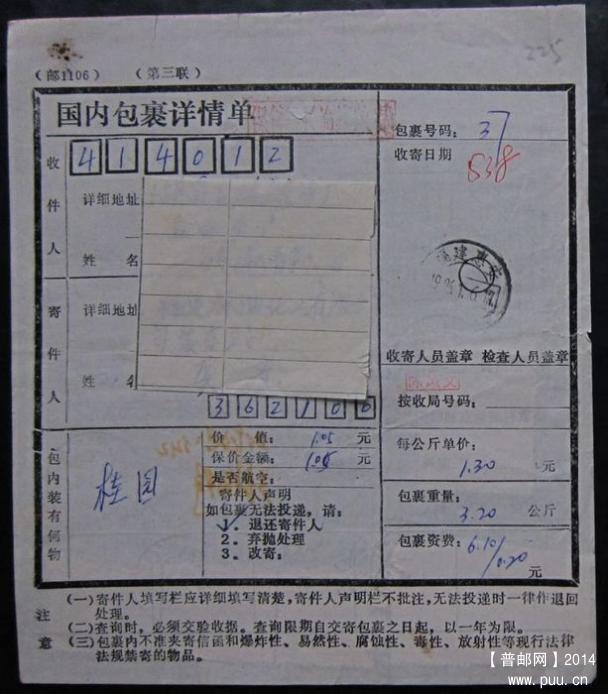 225
(邮1106) (第三联)
国内包裹详情单
包裹号码: 37
收寄日期 838
收件人
414012
详细地址
姓名
寄件人
详细地址
姓名
362100
收寄人员盖章 检查人员盖章
按收局号码:
包内装有何物
桂圆
价值: 105 元
保价金额: 105 元
是否航空:
寄件人声明
如包裹无法投递,请:
1. 退还寄件人
2. 弃抛处理
3. 改寄:
每公斤单价:
1.30 元
包裹重量:
3.20 公斤
包裹资费: 6.10/0.20 元
注意
(一)寄件人填写栏应详细填写清楚,寄件人声明栏不批注,无法投递时一律作退回
处理。
(二)查询时,必须交验收据。查询限期自交寄包裹之日起,以一年为限。
(三)包裹内不准夹寄信函和爆炸性、易燃性、腐蚀性、毒性、放射性等现行法律
法规禁寄的物品。
【普邮网】2014
www.puu.cn